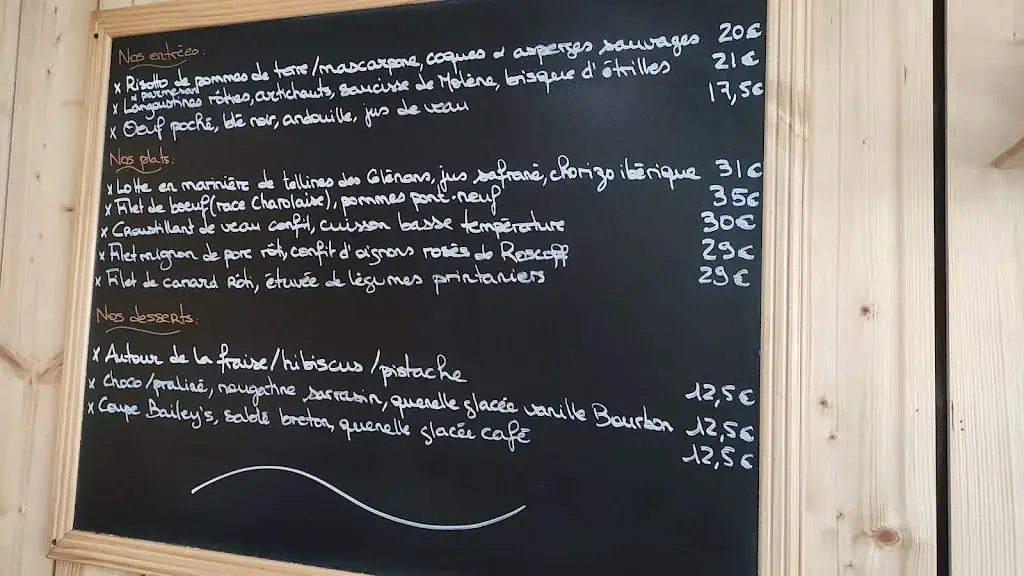 Nos entrées:
x Risotto de pommes de terre/mascarpone, coques et asperges sauvages 20€
parmesan
x Langoustines rôties, artichauts, saucisse de Molène, bisque d'étrilles 21€
x Oeuf poché, blé noir, andouille, jus de veau 17,5€
Nos plats:
x Lotte en marinière de tellines des Glénans, jus safrané, chorizo ibérique 31€
x Filet de boeuf (race Charolaise), pommes pont-neuf 35€
x Croustillant de veau confit, cuisson basse température 30€
x Filet mignon de porc rôti, confit d'oignons rosés de Roscoff 29€
x Filet de canard Rôti, étuvée de légumes printaniers 29€
Nos desserts:
x Autour de la fraise/hibiscus/pistache 12,5€
x Choco/praliné, nougatine sarrasin, quenelle glacée vanille Bourbon 12,5€
x Coupe Bailey's, sablé breton, quenelle glacée café 12,5€